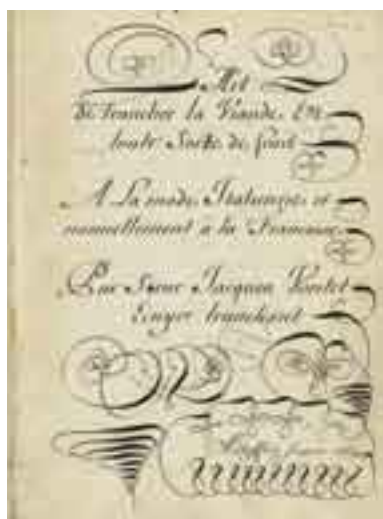 Art
De Trancher la Viande, Et
toute Sorte de fruit
A La mode Italienne et
nouvellement a la Francoise
Par Sieur Jacques Vontet
Ecuyer tranchant